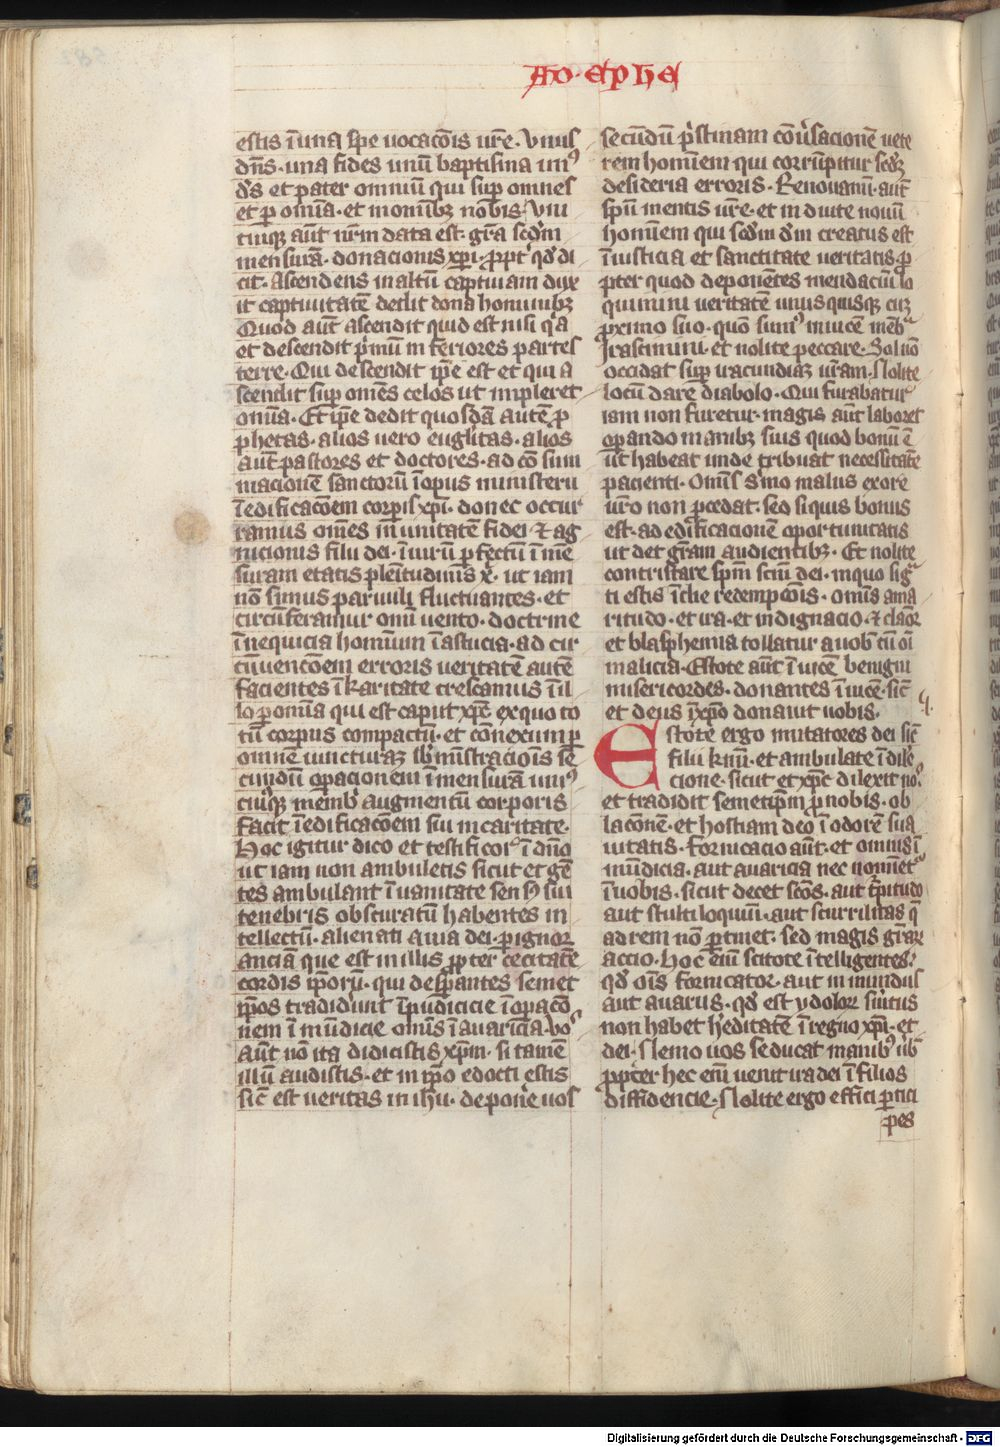 Ad · ephe
estis ī una spe uocacōis ur̄e · Vnus
dn̄s · una fides unū baptisma unꝰ
d̄s et pater omniū qui sup omnes
et ꝑ omīa · et in omībꝫ nobis · Vni
cuiqꝫ aut̄ nrm̄ data est gr̄a scd̄m
mensurā donacionis xp̄i · ꝓpt̄ qd̄ di
cit · Ascendens in altū captiuam dux
it captiuitatē dedit dona hominibꝫ
Quod aut̄ ascendit quid est nisi qꝛa
et descendit pꝛmū inferiores partes
terre · Qui descendit ip̄e est et qui a
scendit sup om̄es celos ut impleret
omīa · Et ip̄e dedit quosdā autē ꝓ
phetas · alios uero eugl̄istas · alios
aut̄ pastores et doctores · ad cō sum
macionē sanctorū ī opus ministerii
ī edificacōem corpis xp̄i · donec occur
ramus om̄es in unitatē fidei et ag
nicionis filii dei · ī uirū ꝑfectū ī me
suram etatis plenitudinis x̄ · ut iam
nō simus paruuli fluctuantes · et
circūferamur omī uento · doctrine
ī nequicia hominum ī astucia · ad cir
cūuencōem erroris ueritatē autē
facientes ī karitate crescamus ī il
lo ꝑ omīa qui est caput xp̄c ex quo to
tū corpus compactū · et cōnexum ꝑ
omnem iuncturaꝫ sb̄ministracioīs se
cundū opacionem ī mensurā uniꝰ
cuiqꝫ membꝛi augmentū corporis
facit ī edificacōem sui in caritate ·
Hoc igitur dico et testificor ī dn̄o
ut iam non ambuletis sicut et gē
tes ambulant ī uanitate sensꝰ sui
tenebris obscuratū habentes in
tellectū · alienati a uia dei · ꝑ ignor
anciā que est in illis ꝓpter cecitatē
cordis ip̄orū · qui despantes semet
ip̄os tradiderunt īpudicicie ī opacō
nem īmūdicie om̄is ī auariciā · Vos
aut̄ nō ita didicistis xp̄m · si tamē
illū audistis · et in ip̄o edocti estis
sic̄ est ueritas in ihū · deponere uos
secūdū pꝛistinam cōuꝛsacionē uete
rem hominem qui corrūpitur scd̄ꝫ
desideria erroris · Renouamī aut̄
sp̄u mentis ur̄e · et induite nouū
hominem qui scd̄m dm̄ creatus est
ī iusticia et sanctitate ueritatis · ꝓ
pter quod deponētes mendaciū lo
quimini ueritatē unusquisqꝫ cuꝫ
ꝓximo suo · quō sumꝰ inuicē mēbꝛa
Irascimini · et nolite peccare · Sol nō
occidat sup iracundiaꝫ ur̄am · Nolite
locū dare diabolo · Qui furabatur
iam non furetur · magis aut̄ laboret
opando manibꝫ suis quod bonū ē
ut habeat unde tribuat necessitatē
pacienti · Omīs s̄mo malus ex ore
ur̄o non ꝓcedat · sed siquis bonus
est · ad edificacionē oportunitatis
ut det gr̄am audientibꝫ · Et nolite
contristare sp̄m sc̄m dei · in quo sig
ti estis ī die redempcōis · omīs ama
ritudo · et ira · et indignacio · et clāor
et blasphemia tollatur a uob̄ cū oī
malicia · Estote aut̄ ī uicē benigni
misericordes · donantes ī uicē · sic̄
et deus ī xp̄o donauit uobis ·
Estote ergo imitatores dei sic̄
filii kmī · et ambulate ī dile
cione · sicut et xp̄c dilexit nos
et tradidit semetip̄m ꝓ nobis · ob
lacōnē · et hostiam deo ī odorē sua
uitatis · Fornicacio aut̄ · et omnis ī
mūdicia · aut auaricia nec nomīetꝰ
ī uobis · sicut decet sc̄os · aut tꝛpitudo
aut stultiloquiū · aut scurrilitas q̄
ad rem nō ꝑtinet · sed magis gr̄aꝝ
accio · Hoc enī scitote ī telligentes ·
qd̄ om̄s fornicator · aut in mundus
aut auarus · qd̄ est ydoloꝝ suitus
non habet hereditatē ī regno xp̄i · et
dei · Nemo uos seducat manibꝰ ūb̄
ꝓpter hec enī uenit ira dei ī filios
diffidencie · Nolite ergo effici ꝑtici
pes
Digitalisierung gefördert durch die Deutsche Forschungsgemeinschaft - DFG